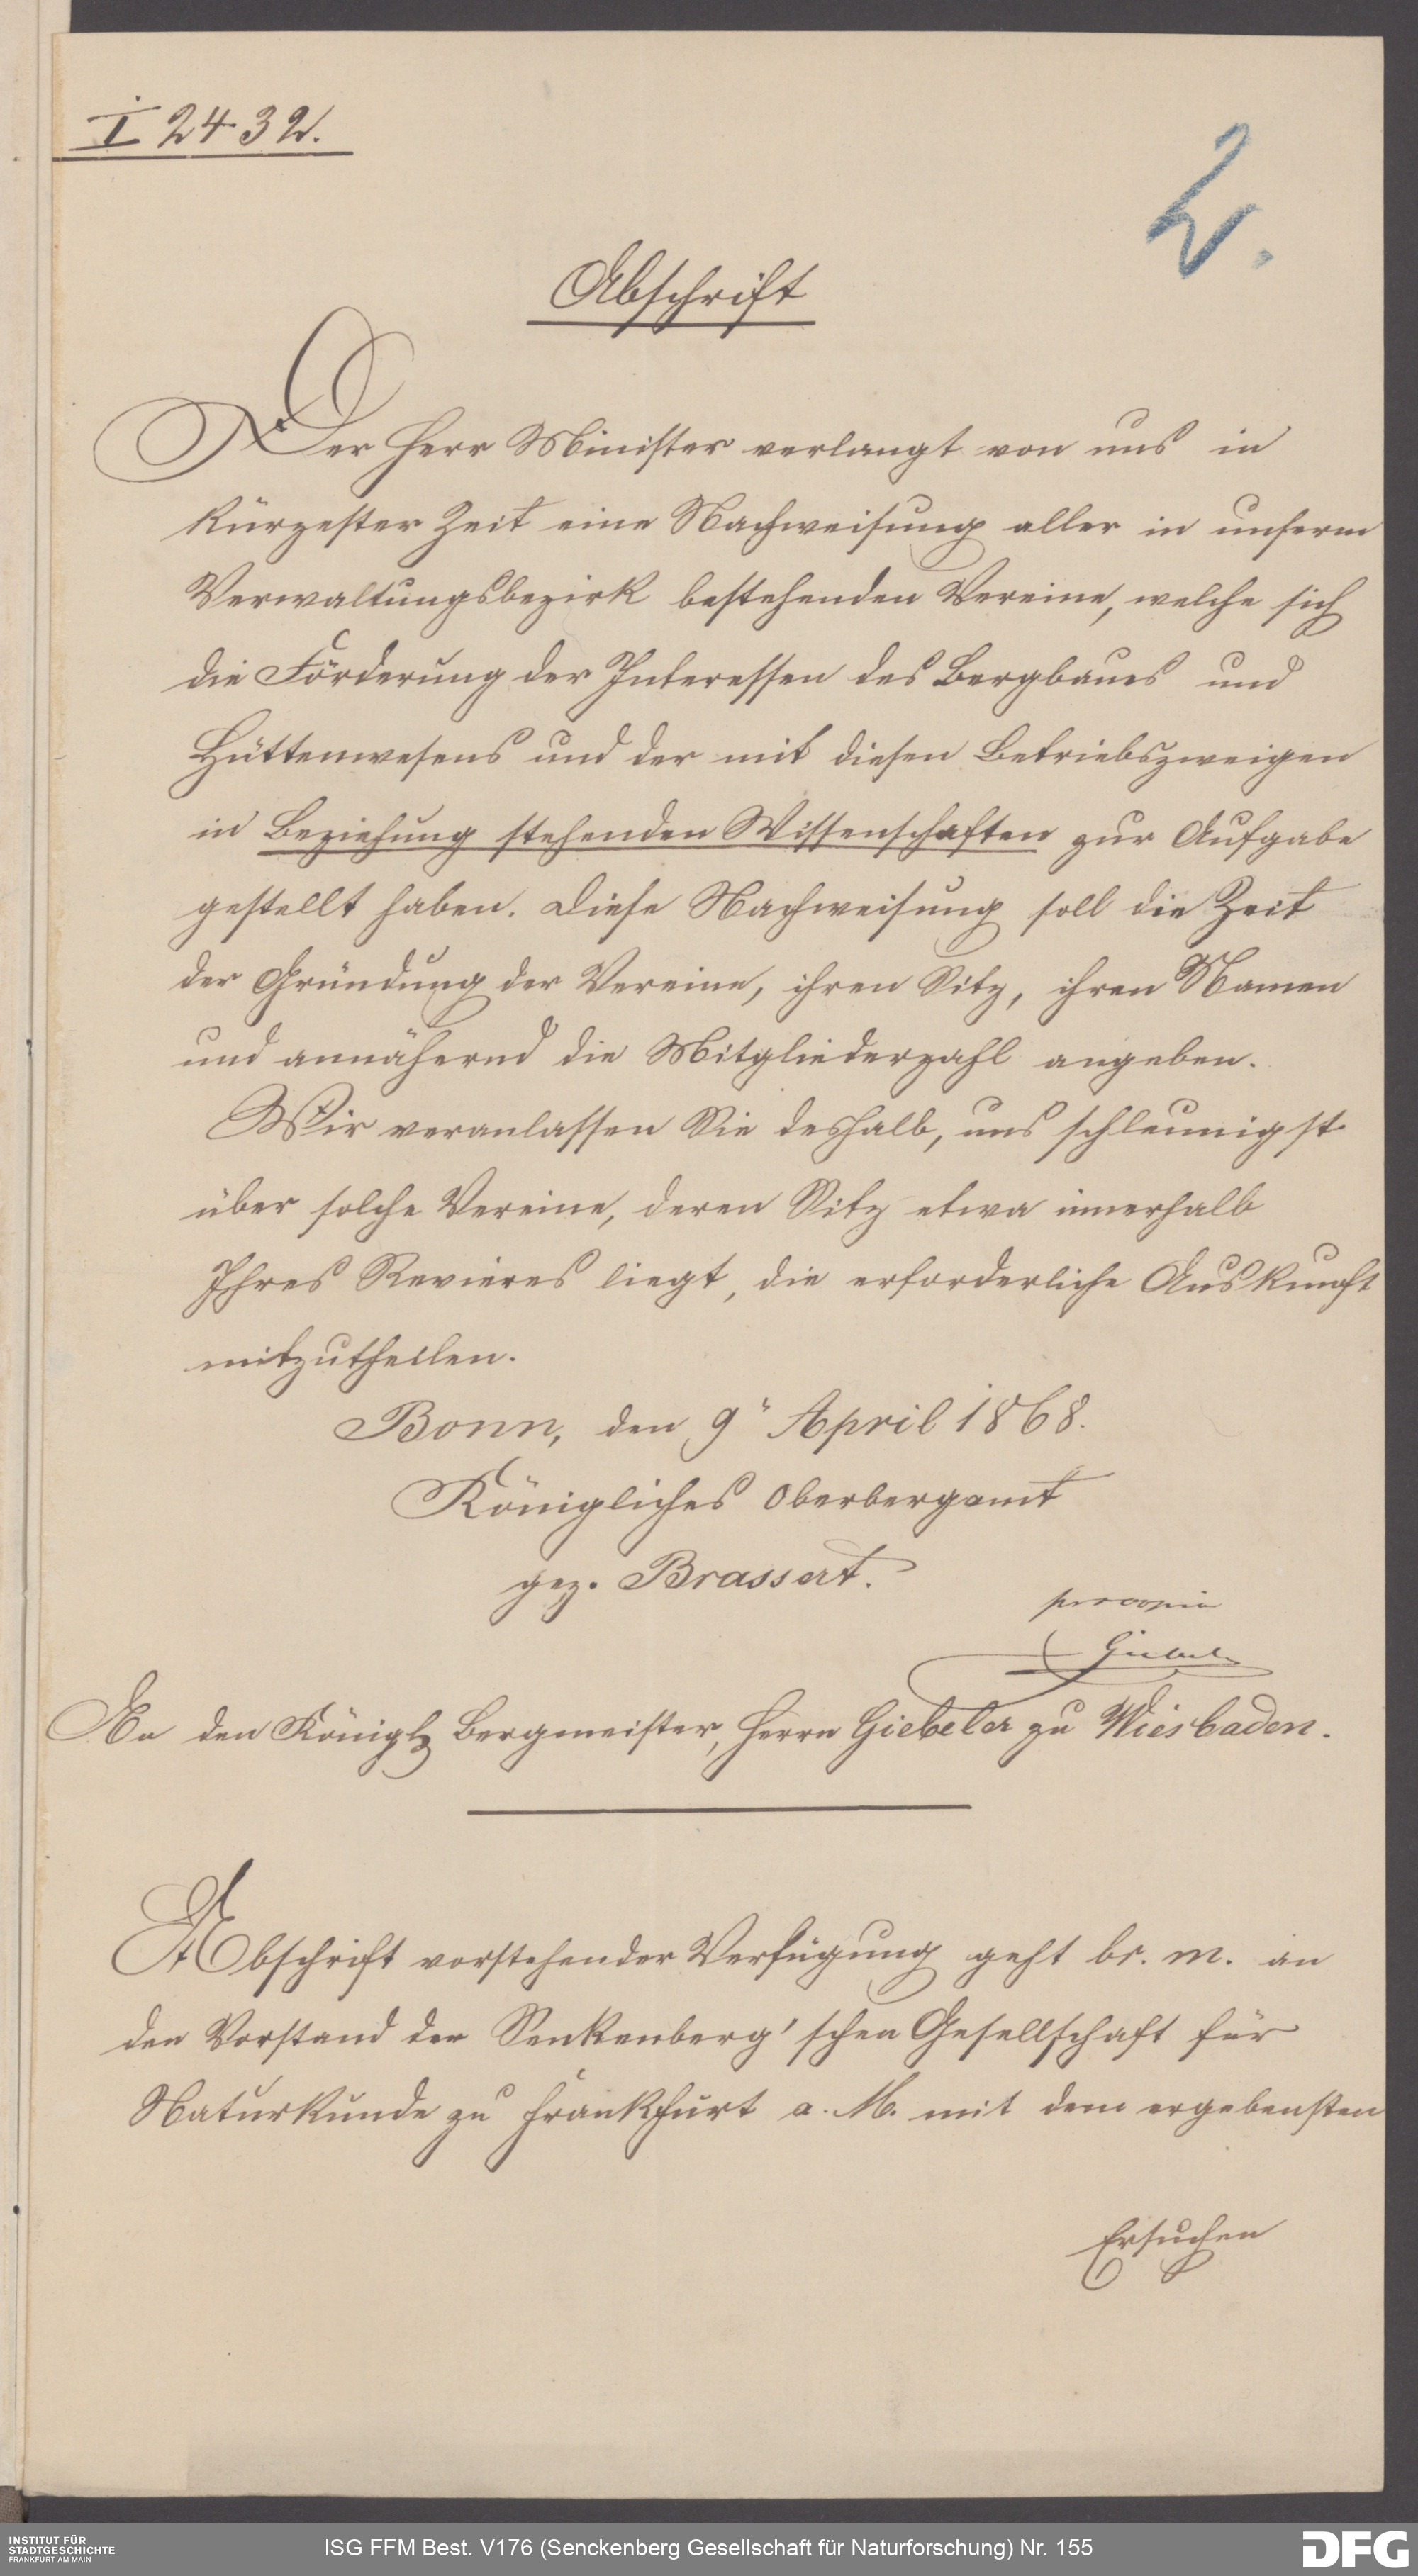 I 2432.
2.
Abschrift
Der Herr Minister verlangt von uns in
kürzester Zeit eine Nachweisung aller in unserm
Verwaltungsbezirk bestehenden Vereine, welche sich
die Förderung der Interessen des Bergbaues und
Hüttenwesens und der mit diesen Betriebszweigen
in Beziehung stehenden Wissenschaften zur Aufgabe
gestellt haben. Diese Nachweisung soll die Zeit
der Gründung der Vereine, ihren Sitz, ihren Namen
und annähernd die Mitgliederzahl angeben.
Wir veranlassen Sie deshalb, uns schleunigst
über solche Vereine, deren Sitz etwa innerhalb
Ihres Revieres liegt, die erforderliche Auskunft
mitzutheilen.
Bonn, den 9" April 1868.
Königliches Oberbergamt
gez. Brassert.
pro copia
Giebeler
An den Königl. Bergmeister, Herrn Giebeler zu Wiesbaden.
Abschrift vorstehender Verfügung geht br. m. an
den Vorstand der Senkenberg'schen Gesellschaft für
Naturkunde zu Frankfurt a. M. mit dem ergebensten
Ersuchen
INSTITUT FÜR
STADTGESCHICHTE
FRANKFURT AM MAIN
ISG FFM Best. V176 (Senckenberg Gesellschaft für Naturforschung) Nr. 155
DFG